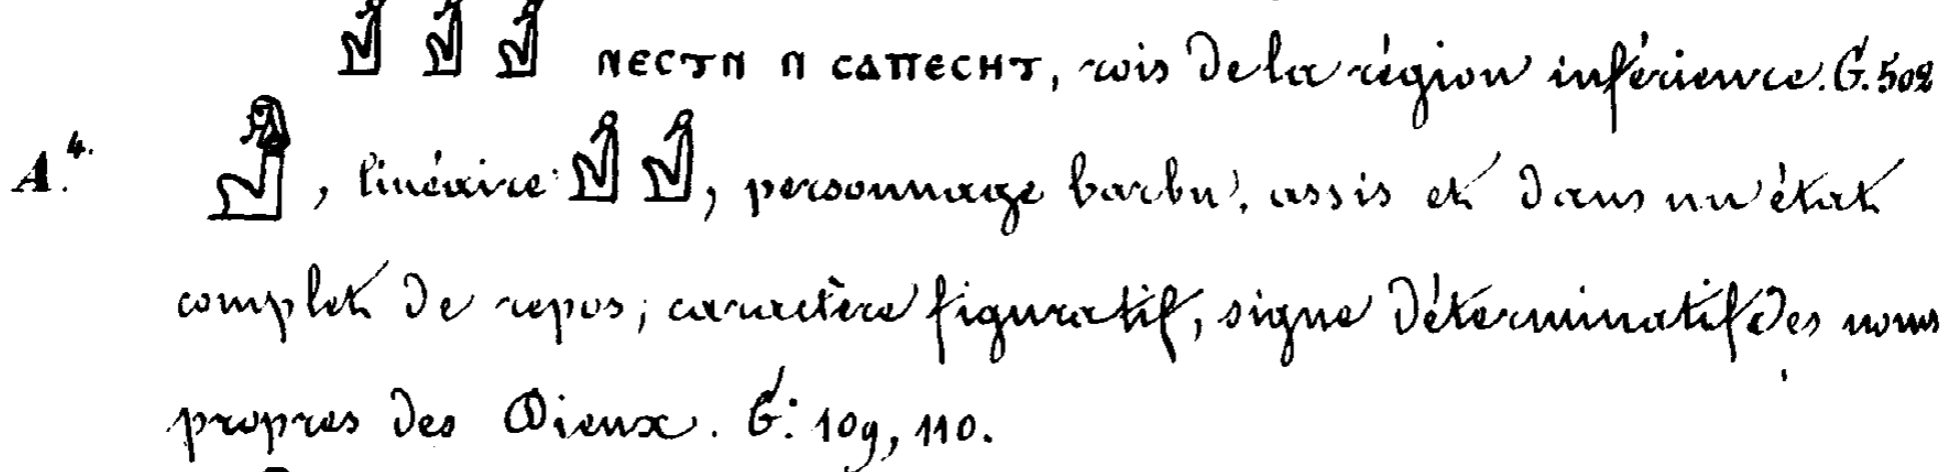 𓀭 𓀭 𓀭 ⲛⲉⲥⲧⲛ ⲛ ⲥⲁⲡⲉⲥⲏⲧ, rois de la région inférieure. G. 502
A.4. 𓀭, linéaire 𓀭 𓀭, personnage barbu, assis et dans un état
complet de repos; caractère figuratif, signe déterminatif des noms
propres des Dieux. G: 109, 110.